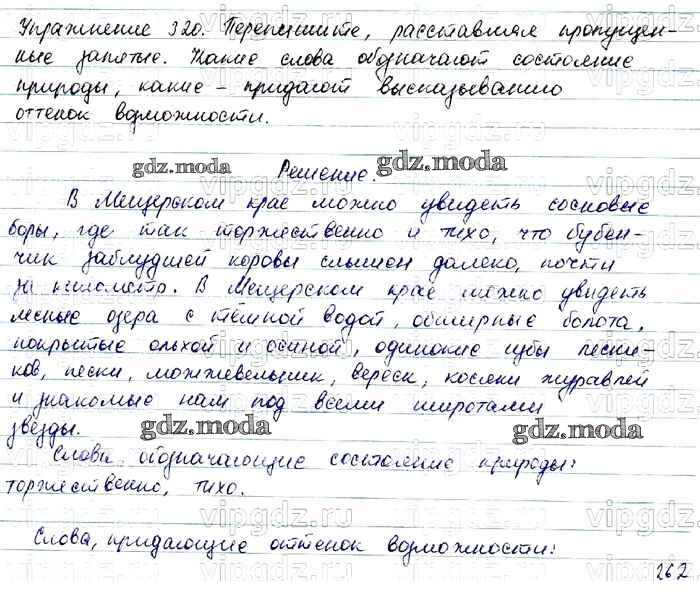 Упражнение 320. Перепишите, расставляя пропущен-
ные запятые. Какие слова обозначают состояние
природы, какие - придают высказыванию
оттенок возможности.
gdz.moda
Решение.
gdz.moda
В Мещерском крае можно увидеть сосновые
боры, где так торжественно и тихо, что бубен-
чик заблудшей коровы слышен далеко, почти
за километр. В Мещерском крае можно увидеть
лесные озера с тёмной водой, обширные болота,
покрытые ольхой и осиной, одинокие избы лесни-
ков, пески, можжевельник, вереск, косяки журавлей
и знакомые нам под всеми широтами
звезды.
gdz.moda
gdz.moda
Слова обозначающие состояние природы:
торжественно, тихо.
Слова, придающие оттенок возможности:
262
vipgdz.ru